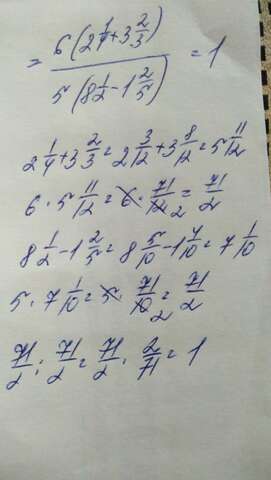 = 6 (2 1/4 + 3 2/3) / 5 (8 1/2 - 1 2/5) = 1
2 1/4 + 3 2/3 = 2 3/12 + 3 8/12 = 5 11/12
6 · 5 11/12 = 6 · 71/12 2 = 71/2
8 1/2 - 1 2/5 = 8 5/10 - 1 4/10 = 7 1/10
5 · 7 1/10 = 5 · 71/10 2 = 71/2
71/2 : 71/2 = 71/2 · 2/71 = 1